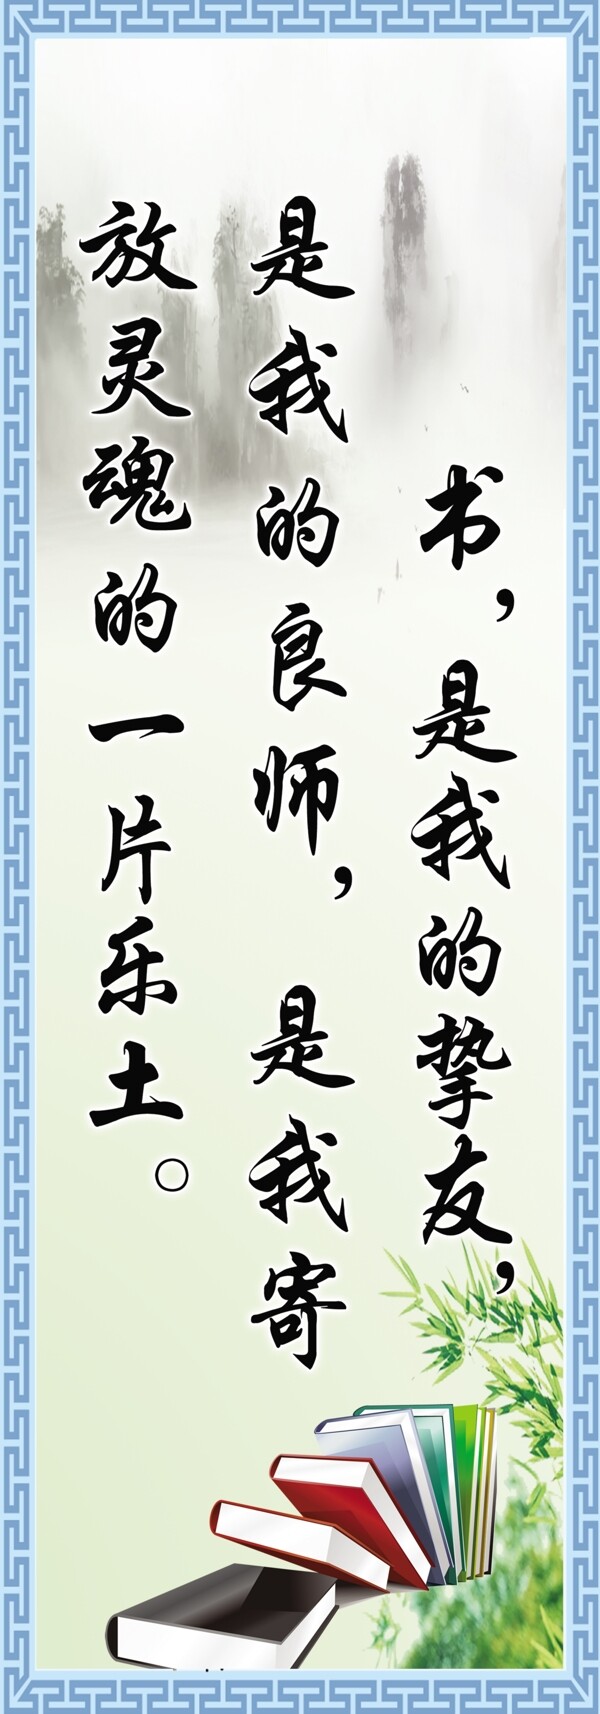 书，是我的挚友，
是我的良师，是我寄
放灵魂的一片乐土。